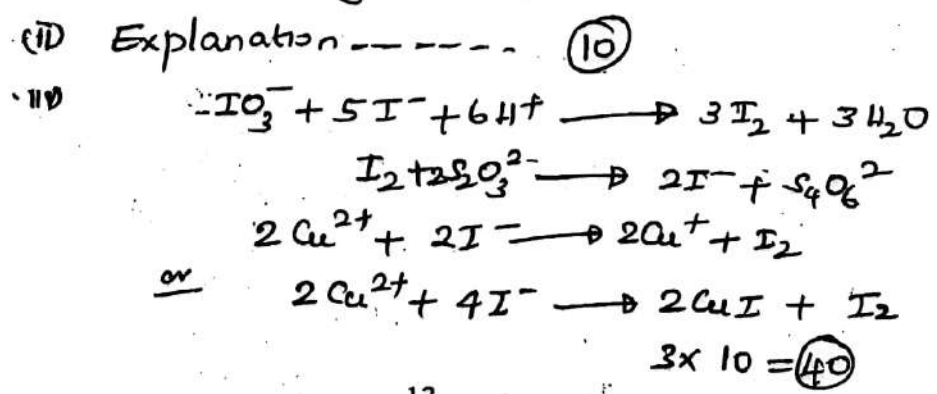 (ii) Explanation ------- (10)
iii) IO₃⁻ + 5I⁻ + 6H⁺ ⟶ 3I₂ + 3H₂O
I₂ + 2S₂O₃²⁻ ⟶ 2I⁻ + S₄O₆²
2Cu²⁺ + 2I⁻ ⟶ 2Cu⁺ + I₂
or 2Cu²⁺ + 4I⁻ ⟶ 2CuI + I₂
3x 10 = (40)